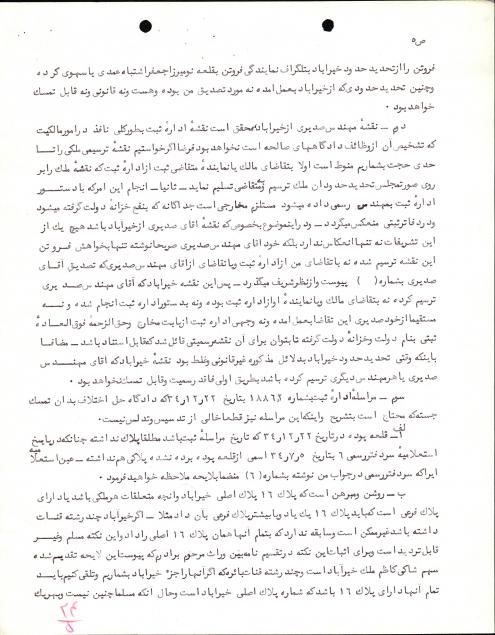 ص ۵
فروتن را از تحدید حدود خیراباد بتلگراف نمایندگی فروتن بقلعه نو میرزا جعفر اشتباه عمدی یا سهوی کرده
و چنین تحدید حدودی که از خیراباد بعمل امده نه مورد تصدیق من بوده و هست و نه قانونی و نه قابل تمسک
خواهد بود .
دوم – نقشهٔ مهندس صدیری از خیراباد محقق است نقشهٔ ادارهٔ ثبت بطور کلی نافذ در امور مالکیت
که تشخیص آن از وظائف دادگاههای صالحه است نخواهد بود فرضا اگر خواستیم نقشهٔ ترسیمی ملکی را تا
حدی حجت بشماریم منوط است اولا بتقاضای مالک یا نمایندهٔ متقاضی ثبت از ادارهٔ ثبت که نقشهٔ ملک را بر
روی صورتمجلس تحدید حدود ان ملک ترسیم و بمتقاضی تسلیم نماید – ثانیا – انجام این امر که با دستور
ادارهٔ ثبت بمهندس رسمی داده میشود مستلزم مخارجی است جداگانه که بنفع خزانهٔ دولت گرفته میشود
و در دفاتر ثبتی منعکس میگردد – و در اینموضوع بخصوص که نقشهٔ اقای صدیری از خیراباد باشد هیچ یک از
این تشریفات نه تنها انعکاس ندارد بلکه خود اقای مهندس صدیری صریحا نوشته تنها بخواهش فروتن
این نقشه ترسیم شده نه با تقاضای من از ادارهٔ ثبت و یا تقاضای از اقای مهندس صدیری که تصدیق آقای
صدیری بشماره ( ) پیوست و از نظر شریف میگذرد – پس این نقشه خیراباد که آقای مهندس صدیری
ترسیم کرده نه بتقاضای مالک و یا نمایندهٔ او از ادارهٔ ثبت بوده و نه بدستور ادارهٔ ثبت انجام شده و نه
مستقیما از خود صدیری این تقاضا بعمل امده و نه وجهی ادارهٔ ثبت از بابت مخارج و حق الزحمهٔ فوق العادهٔ
ثبتی بنام دولت و خزانهٔ دولت گرفته تا بتوان برای آن نقشه رسمیتی قائل شد که قابل استناد باشد – مضافا
باینکه وقتی تحدید حدود خیراباد بدلائل مذکوره غیر قانونی و غلط بود نقشهٔ خیراباد که آقای مهندس
صدیری یا هر مهندس دیگری ترسیم کرده باشد بطریق اولی فاقد رسمیت و قابل تمسک نخواهد بود .
سوم – مراسلهٔ ادارهٔ ثبت بشماره ۱۸۸۶۲ بتاریخ ۲۲ر۱۲ر۳۴ که دادگاه حل اختلاف بدان تمسک
جسته که محتاج است بتشریح و اینکه این مراسله نیز قطعا خالی از تدسیس و تدلس نیست .
الف – قلعه پوده در تاریخ ۲۲ر۱۲ر۳۴ که تاریخ مراسلهٔ ثبت باشد مطلقا پلاک نداشته چنانکه در پاسخ
استعلامیهٔ سر دفتر رسمی ۶ بتاریخ ۵ر۷ر۳۴ اسمی از قلعه پوده برده نشده پلاکی هم نداشته – عین استعلامیه
ایرا که سردفتر رسمی در جواب من نوشته بشماره (۶) منضما بلایحه ملاحظه خواهید فرمود .
ب – روشن و مبرهن است که پلاک ۱۶ پلاک اصلی خیراباد و انچه متعلقات هر ملکی باشد یا دارای
پلاک فرعی است که باید پلاک ۱۶ یک یا دو یا بیشتر پلاک فرعی بان داد مثلا – اگر خیراباد چند رشته قنات
داشته باشد غیر ممکن است و سابقه ندارد که بتمام انها همان پلاک ۱۶ اصلی را داد و این نکته مسلم و غیر
قابل تردید است و برای اثبات این نکته در تقسیم نامه بین وراث مرحوم برادرم که پیوست این لایحه تقدیم شده
سهم شاکی کاظم ملک خیراباد است و چند رشته قنات بائره که اگر انها را جزء خیراباد بشماریم و تلقی کنیم باید
تمام انها دارای پلاک ۱۶ باشد که شماره پلاک اصلی خیراباد است و حال انکه مسلما چنین نیست و بهر یک